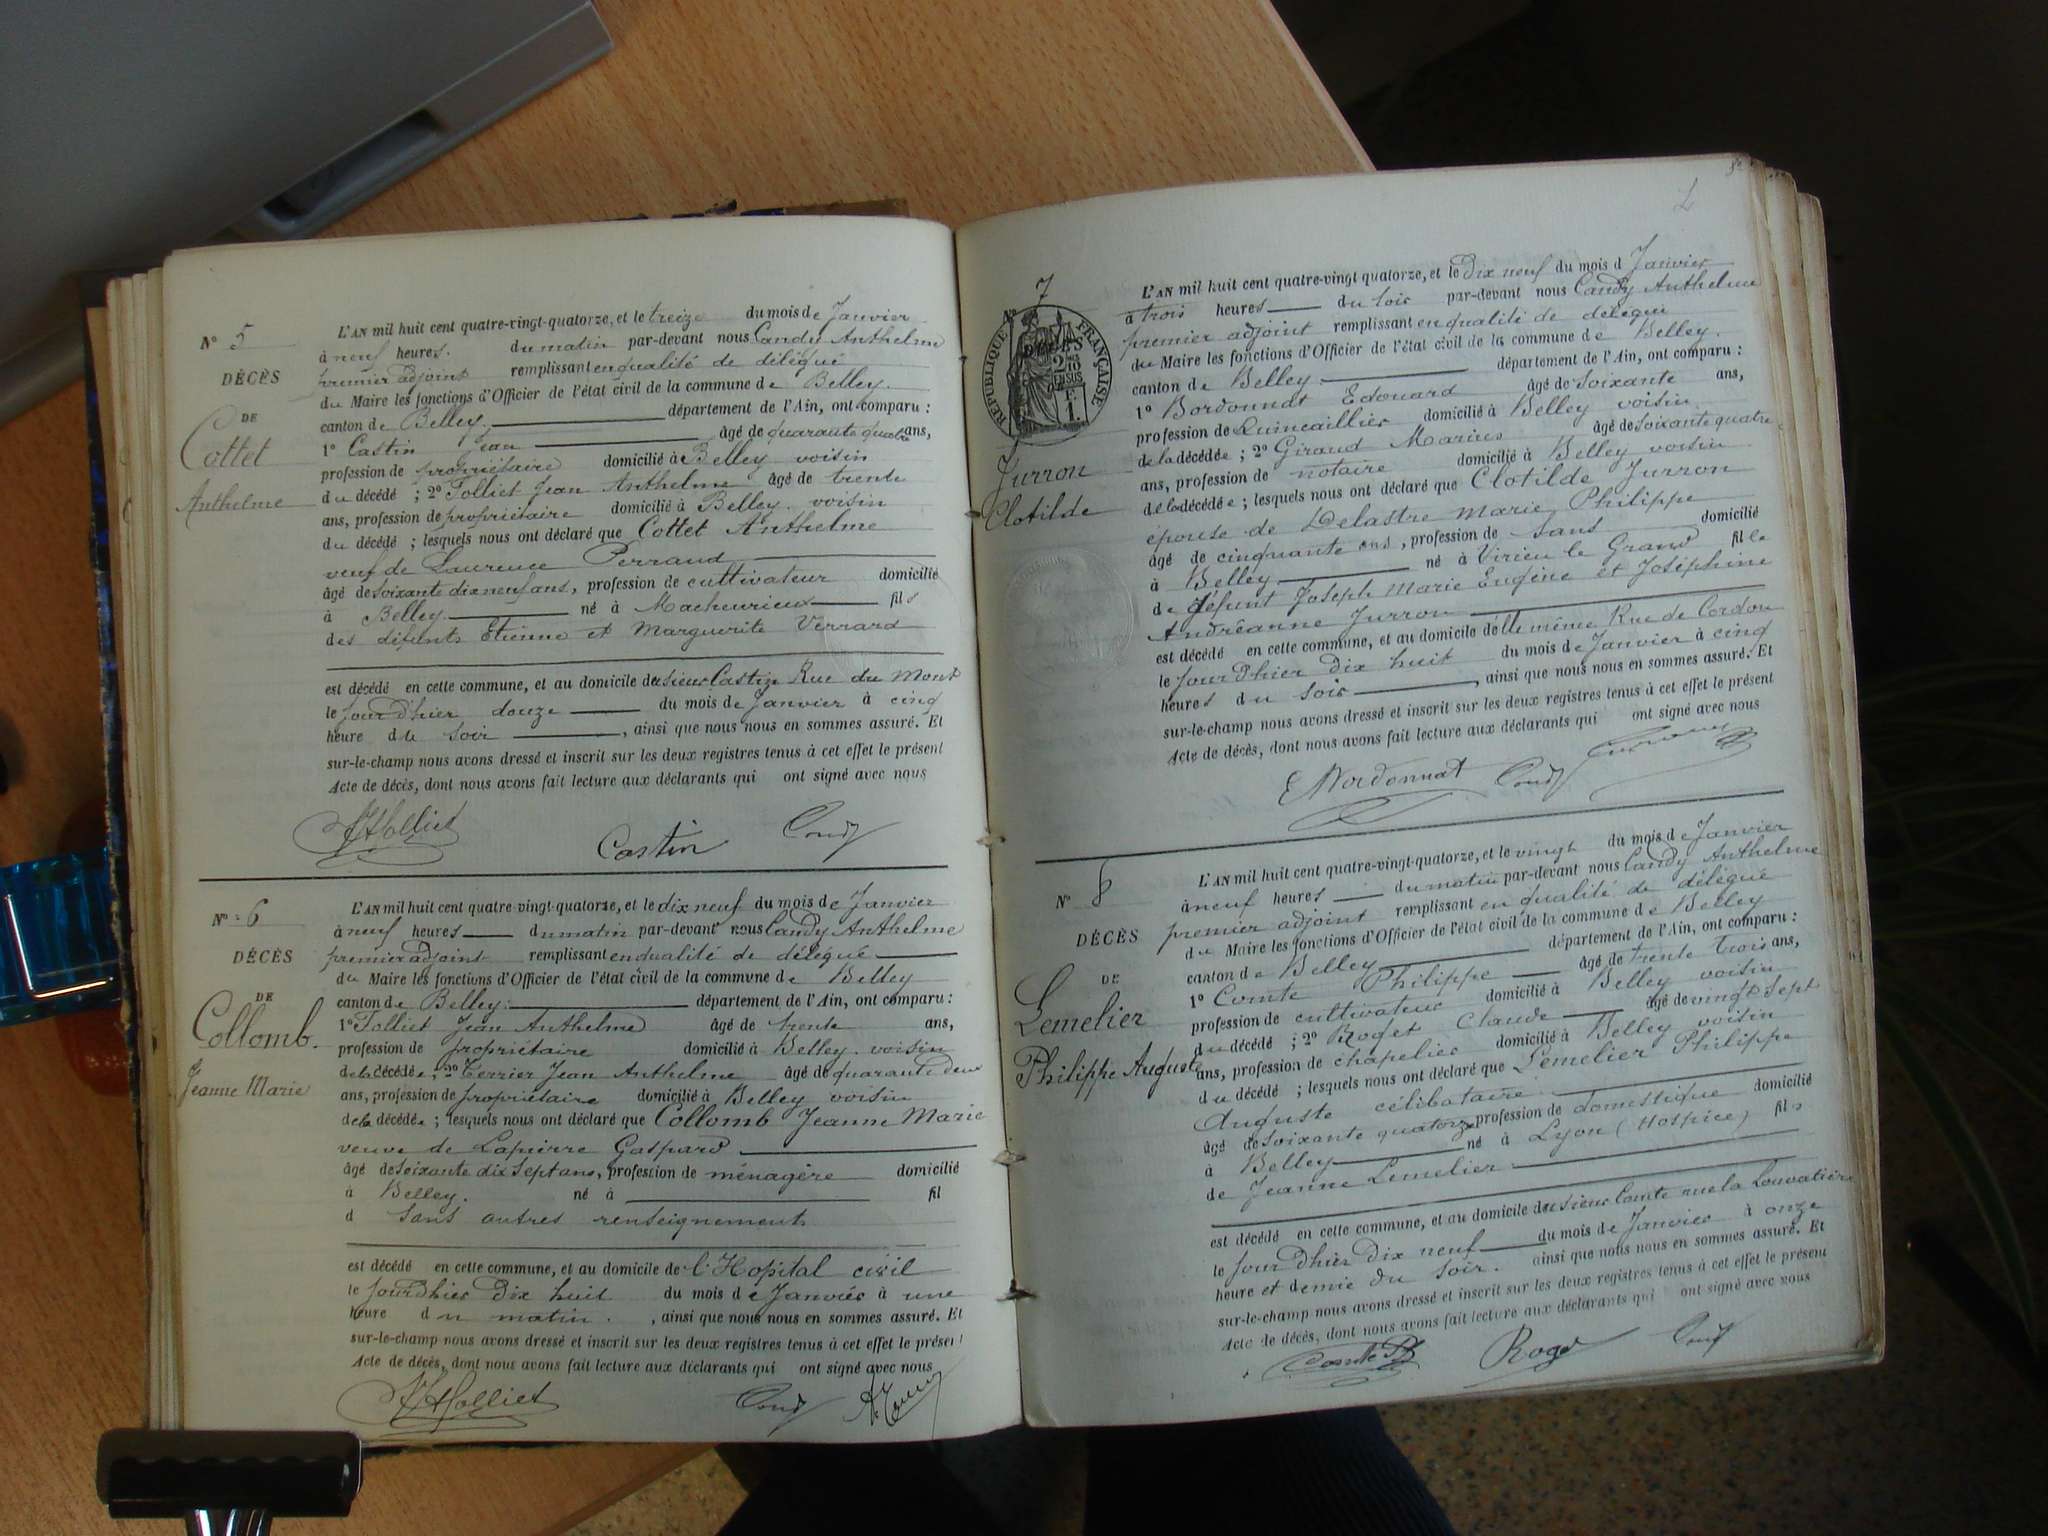 Nº 5
DÉCÈS
DE
Cottet
Anthelme
L'AN mil huit cent quatre-vingt-quatorze, et le treize du mois de Janvier
à neuf heures. du matin par-devant nous Candy Anthelme
premier adjoint remplissant en qualité de délégué
du Maire les fonctions d'Officier de l'état civil de la commune de Belley.
canton de Belley. département de l'Ain, ont comparu :
1º Castin Jean âgé de quarante quatre ans,
profession de propriétaire domicilié à Belley voisin
du décédé ; 2º Tolliet Jean Anthelme âgé de trente
ans, profession de propriétaire domicilié à Belley. voisin
du décédé ; lesquels nous ont déclaré que Cottet Anthelme
veuf de Laurence Perraud
âgé de soixante dix neuf ans, profession de cultivateur domicilié
à Belley. né à Macheurieux fils
des défunts Etienne et Marguerite Verrard
est décédé en cette commune, et au domicile du sieur Castin Rue du Mont
le jour d'hier douze du mois de Janvier à cinq
heure du soir , ainsi que nous nous en sommes assuré. Et
sur-le-champ nous avons dressé et inscrit sur les deux registres tenus à cet effet le présent
Acte de décès, dont nous avons fait lecture aux déclarants qui ont signé avec nous
JATolliet Castin Candy
Nº 6
DÉCÈS
DE
Collomb.
Jeanne Marie
L'AN mil huit cent quatre-vingt-quatorze, et le dix neuf du mois de Janvier
à neuf heures du matin par-devant nous Candy Anthelme
premier adjoint remplissant en qualité de délégué
du Maire les fonctions d'Officier de l'état civil de la commune de Belley
canton de Belley. département de l'Ain, ont comparu :
1º Tolliet Jean Anthelme âgé de trente ans,
profession de propriétaire domicilié à Belley. voisin
de la décédée ; 2º Terrier Jean Anthelme âgé de quarante deux
ans, profession de propriétaire domicilié à Belley voisin
de la décédée ; lesquels nous ont déclaré que Collomb Jeanne Marie
veuve de Lapierre Gaspard
âgé de soixante dix sept ans, profession de ménagère domicilié
à Belley. né à fil
d sans autres renseignements
est décédé en cette commune, et au domicile de l'Hopital civil
le jour d'hier dix huit du mois de Janvier à une
heure du matin. , ainsi que nous nous en sommes assuré. Et
sur-le-champ nous avons dressé et inscrit sur les deux registres tenus à cet effet le présent
Acte de décès, dont nous avons fait lecture aux déclarants qui ont signé avec nous
JATolliet Candy
Nº 7
RÉPUBLIQUE FRANÇAISE
DÉCÈS
2/10 EN SUS
1 F.
Jurron
Clotilde
L'AN mil huit cent quatre-vingt quatorze, et le dix neuf du mois d Janvier
à trois heures du soir par-devant nous Candy Anthelme
premier adjoint remplissant en qualité de délégué
du Maire les fonctions d'Officier de l'état civil de la commune de Belley.
canton de Belley. département de l'Ain, ont comparu :
1º Bordonnat Edouard âgé de soixante ans,
profession de Quincaillier domicilié à Belley voisin
de la décédée ; 2º Giraud Marius âgé de soixante quatre
ans, profession de notaire domicilié à Belley voisin
de la décédée ; lesquels nous ont déclaré que Clotilde Jurron
épouse de Delastre Marie Philippe
âgé de cinquante ans, profession de sans domicilié
à Belley. né à Virieu le Grand fille
de défunt Joseph Marie Eugène et Joséphine
Andréanne Jurron
est décédé en cette commune, et au domicile d'elle même Rue de Cordon
le jour d'hier dix huit du mois de Janvier à cinq
heures du soir , ainsi que nous nous en sommes assuré. Et
sur-le-champ nous avons dressé et inscrit sur les deux registres tenus à cet effet le présent
Acte de décès, dont nous avons fait lecture aux déclarants qui ont signé avec nous
E Bordonnat Candy
Nº 8
DÉCÈS
DE
Lemelier
Philippe Auguste
L'AN mil huit cent quatre-vingt-quatorze, et le vingt du mois de Janvier
à neuf heures du matin par-devant nous Candy Anthelme
premier adjoint remplissant en qualité de délégué
du Maire les fonctions d'Officier de l'état civil de la commune de Belley
canton de Belley département de l'Ain, ont comparu :
1º Comte Philippe âgé de trente trois ans,
profession de cultivateur domicilié à Belley voisin
du décédé ; 2º Roget Claude âgé de vingt sept
ans, profession de chapelier domicilié à Belley voisin
du décédé ; lesquels nous ont déclaré que Lemelier Philippe
Auguste célibataire
âgé de soixante quatorze profession de domestique domicilié
à Belley né à Lyon (Hospice) fils
de Jeanne Lemelier
est décédé en cette commune, et au domicile du sieur Comte rue la Louvatière
le jour d'hier dix neuf du mois de Janvier à onze
heure et demie du soir. ainsi que nous nous en sommes assuré. Et
sur-le-champ nous avons dressé et inscrit sur les deux registres tenus à cet effet le présent
Acte de décès, dont nous avons fait lecture aux déclarants qui ont signé avec nous
Comte Ph Roget Candy